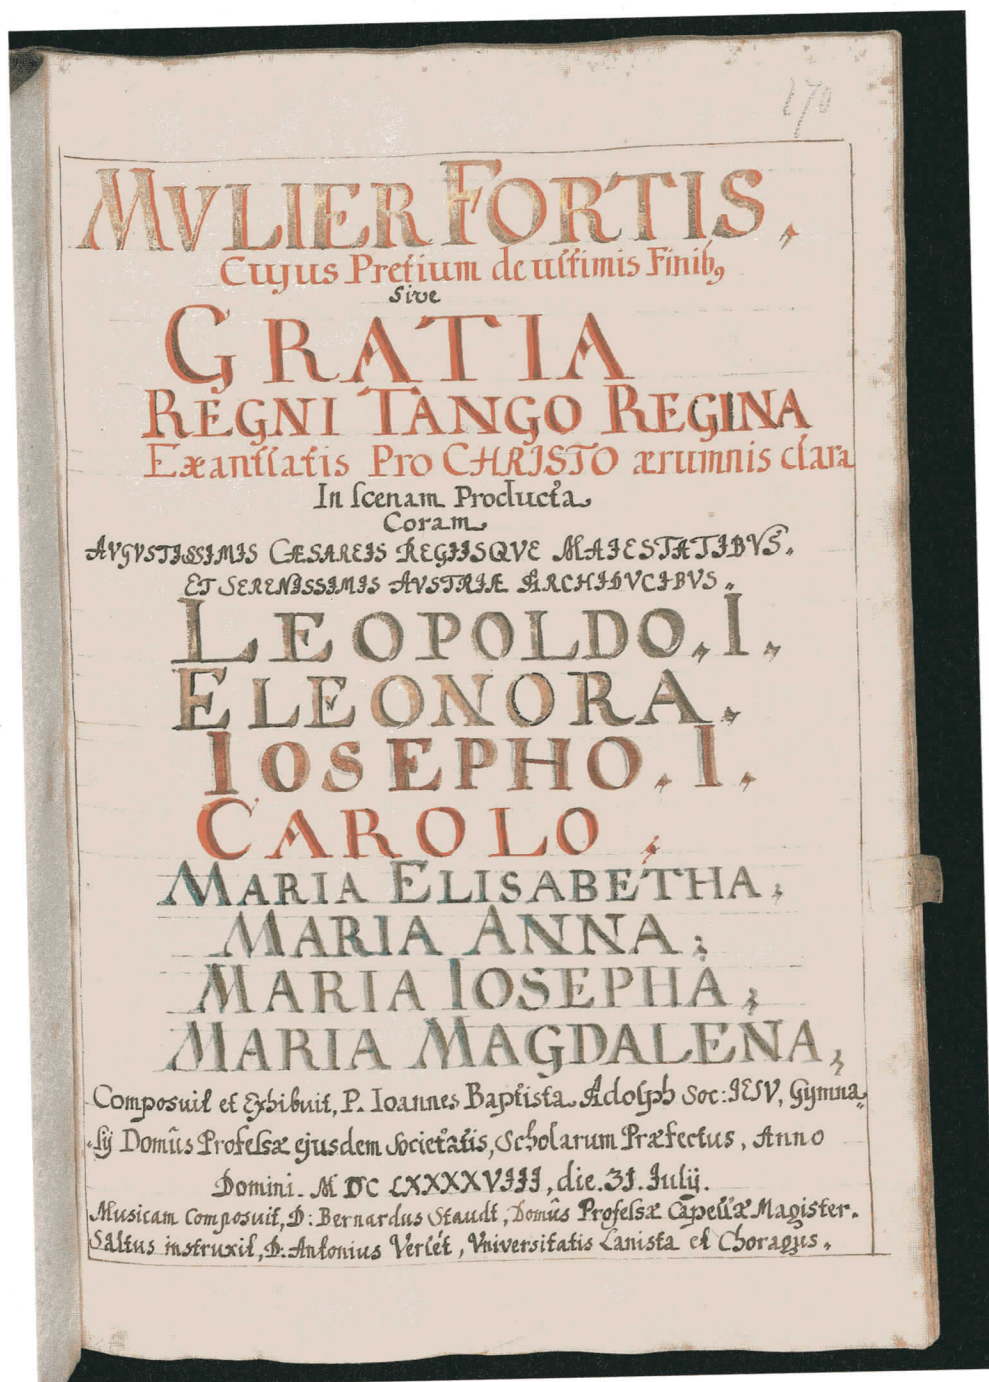 170
MVLIER FORTIS,
Cujus Pretium de ultimis Finibꝫ
Sive
GRATIA
REGNI TANGO REGINA
Exantlatis Pro CHRISTO ærumnis clara
In scenam Producta
Coram
AVGVSTISSIMIS CÆSAREIS REGIISQVE MAIESTATIBVS.
ET SERENISSIMIS AVSTRIÆ ARCHIDVCIBVS.
LEOPOLDO. I.
ELEONORA.
IOSEPHO. I.
CAROLO,
MARIA ELISABETHA;
MARIA ANNA;
MARIA IOSEPHA;
MARIA MAGDALENA;
Composuit et Exhibuit, P. Ioannes Baptista Adolph Soc: IESV, Gymna-
-sij Domûs Professæ ejusdem Societatis, Scholarum Præfectus, Anno
Domini. M DC LXXXXVIII, die. 31. Iulij.
Musicam Composuit, D: Bernardus Staudt, Domûs Professæ Capellæ Magister.
Saltus instruxit, D. Antonius Verlét, Vniversitatis Lanista et Choragus.